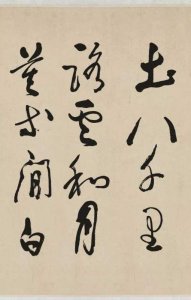 土八千里
路云和月
莫等闲白